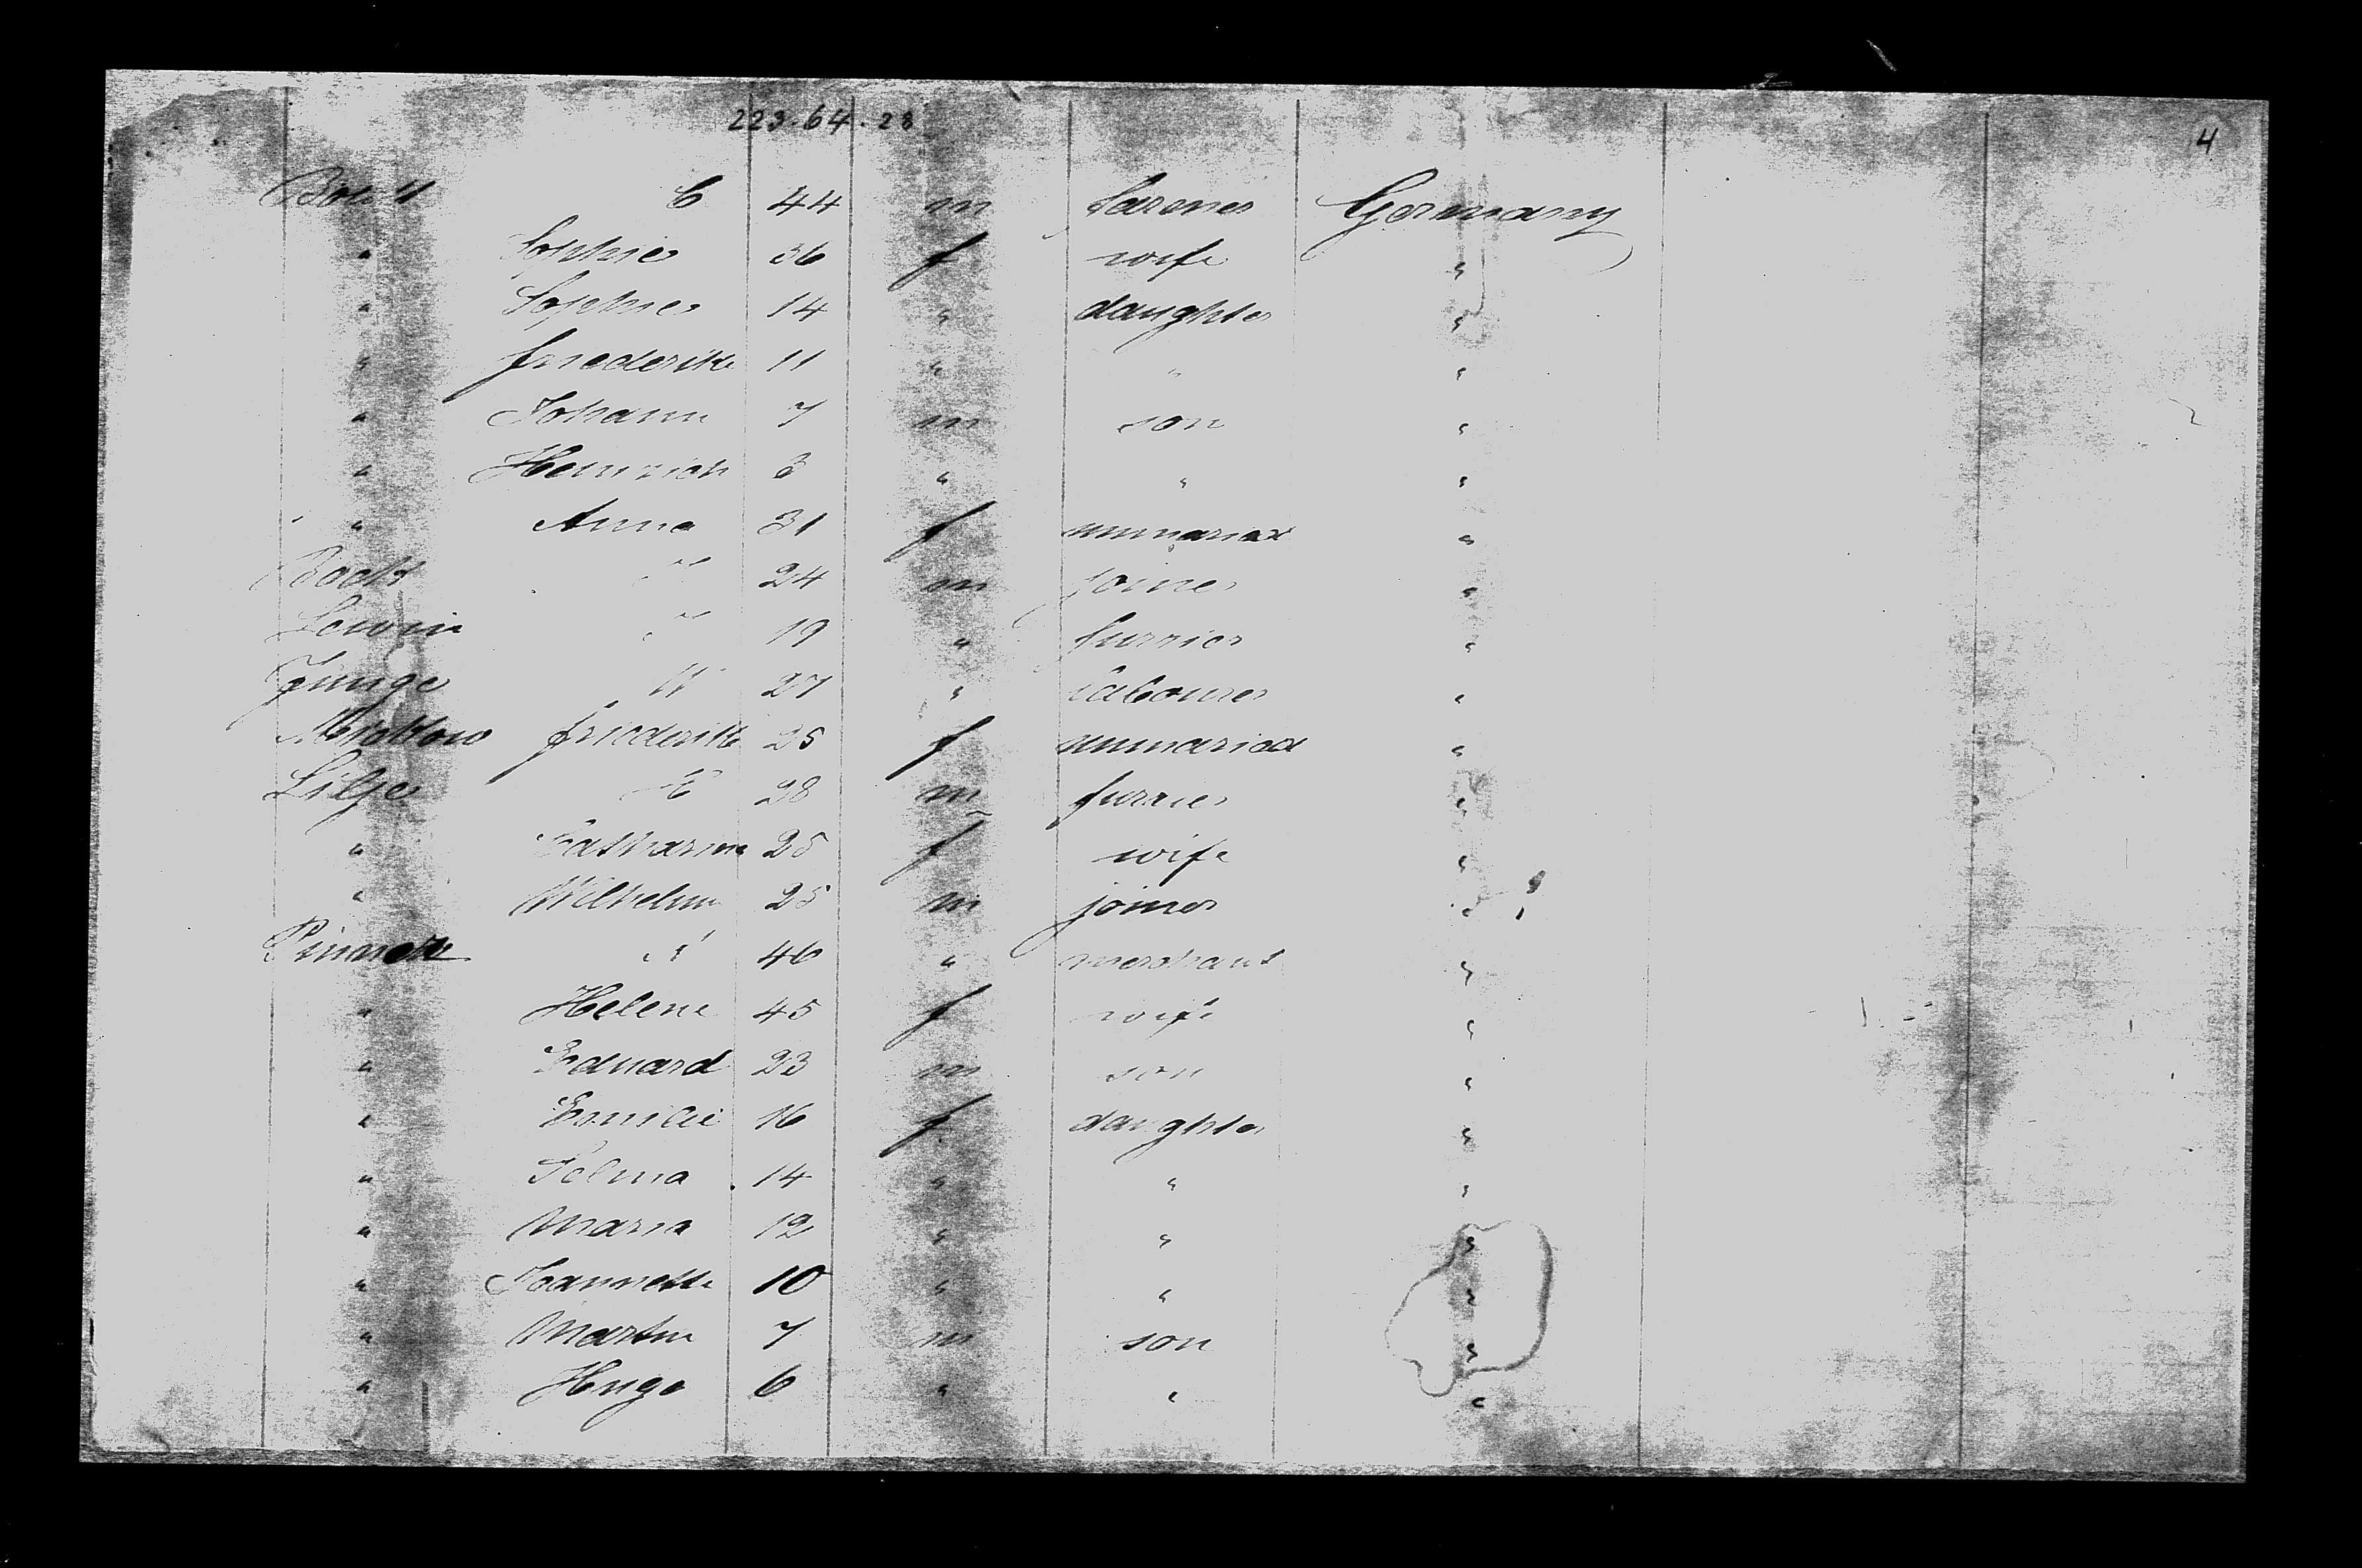 223.64.28
4
C 44 m farmer Germany
" Sophie 36 f wife "
" Sophie 14 " daughter "
" Friederike 11 " " "
" Johann 7 m son "
" Heinrich 3 " " "
" Anna 31 f unmaried "
24 m joiner "
19 " furrier "
Junge W 27 " labourer "
Friederike 25 f unmaried "
Lilje 28 m furrier "
" Catharina 25 f wife "
" Wilhelm 25 m joiner "
46 " merchant "
" Helene 45 f wife "
" Eduard 23 m son "
" Emilie 16 f daughter "
" Selma 14 " " "
" Maria 12 " " "
" Jeannette 10 " " "
" Martin 7 m son "
" Hugo 6 " " "